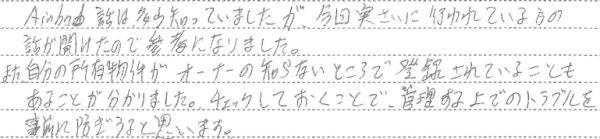 Airbnbの話は多少知っていましたが、今回実さいに行われている方の
話が聞けたので参考になりました。
また自分の所有物件がオーナーの知らないところで登録されていることも
あることが分かりました。チェックしておくことで、管理する上でのトラブルを
事前に防ぎうると思います。